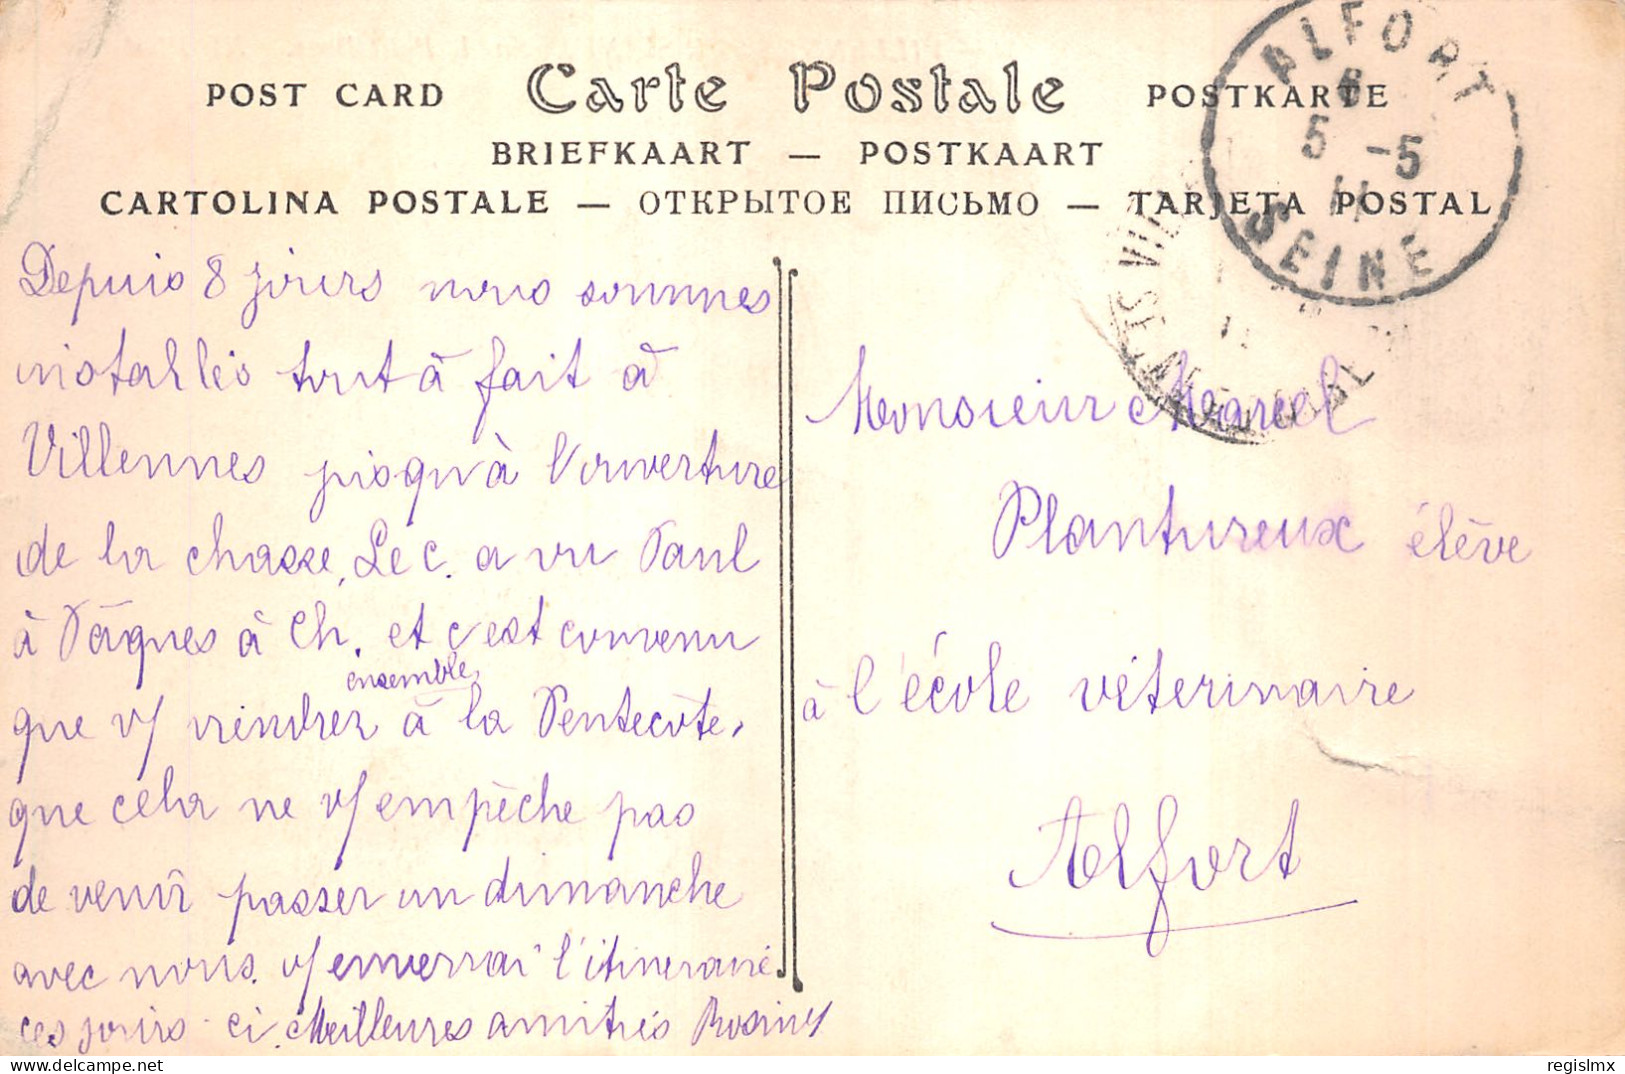 POST CARD Carte Postale POSTKARTE
BRIEFKAART — POSTKAART
CARTOLINA POSTALE — ОТКРЫТОЕ ПИСЬМО — TARJETA POSTAL
ALFORT
5 -5
11
SEINE
Depuis 8 jours nous sommes
installés tout à fait à
Villennes jusqu'à l'ouverture
de la chasse, Le c. a vu Paul
à Pâques à Ch. et c'est convenu
ensemble
que v/ viendrez à la Pentecôte,
que cela ne v/ empèche pas
de venir passer un dimanche
avec nous. v/ enverrai l'itineraire
ces jours-ci. Meilleures amitiés
Monsieur Marcel
Plantureux élève
à l'école véterinaire
Alfort
regislmx